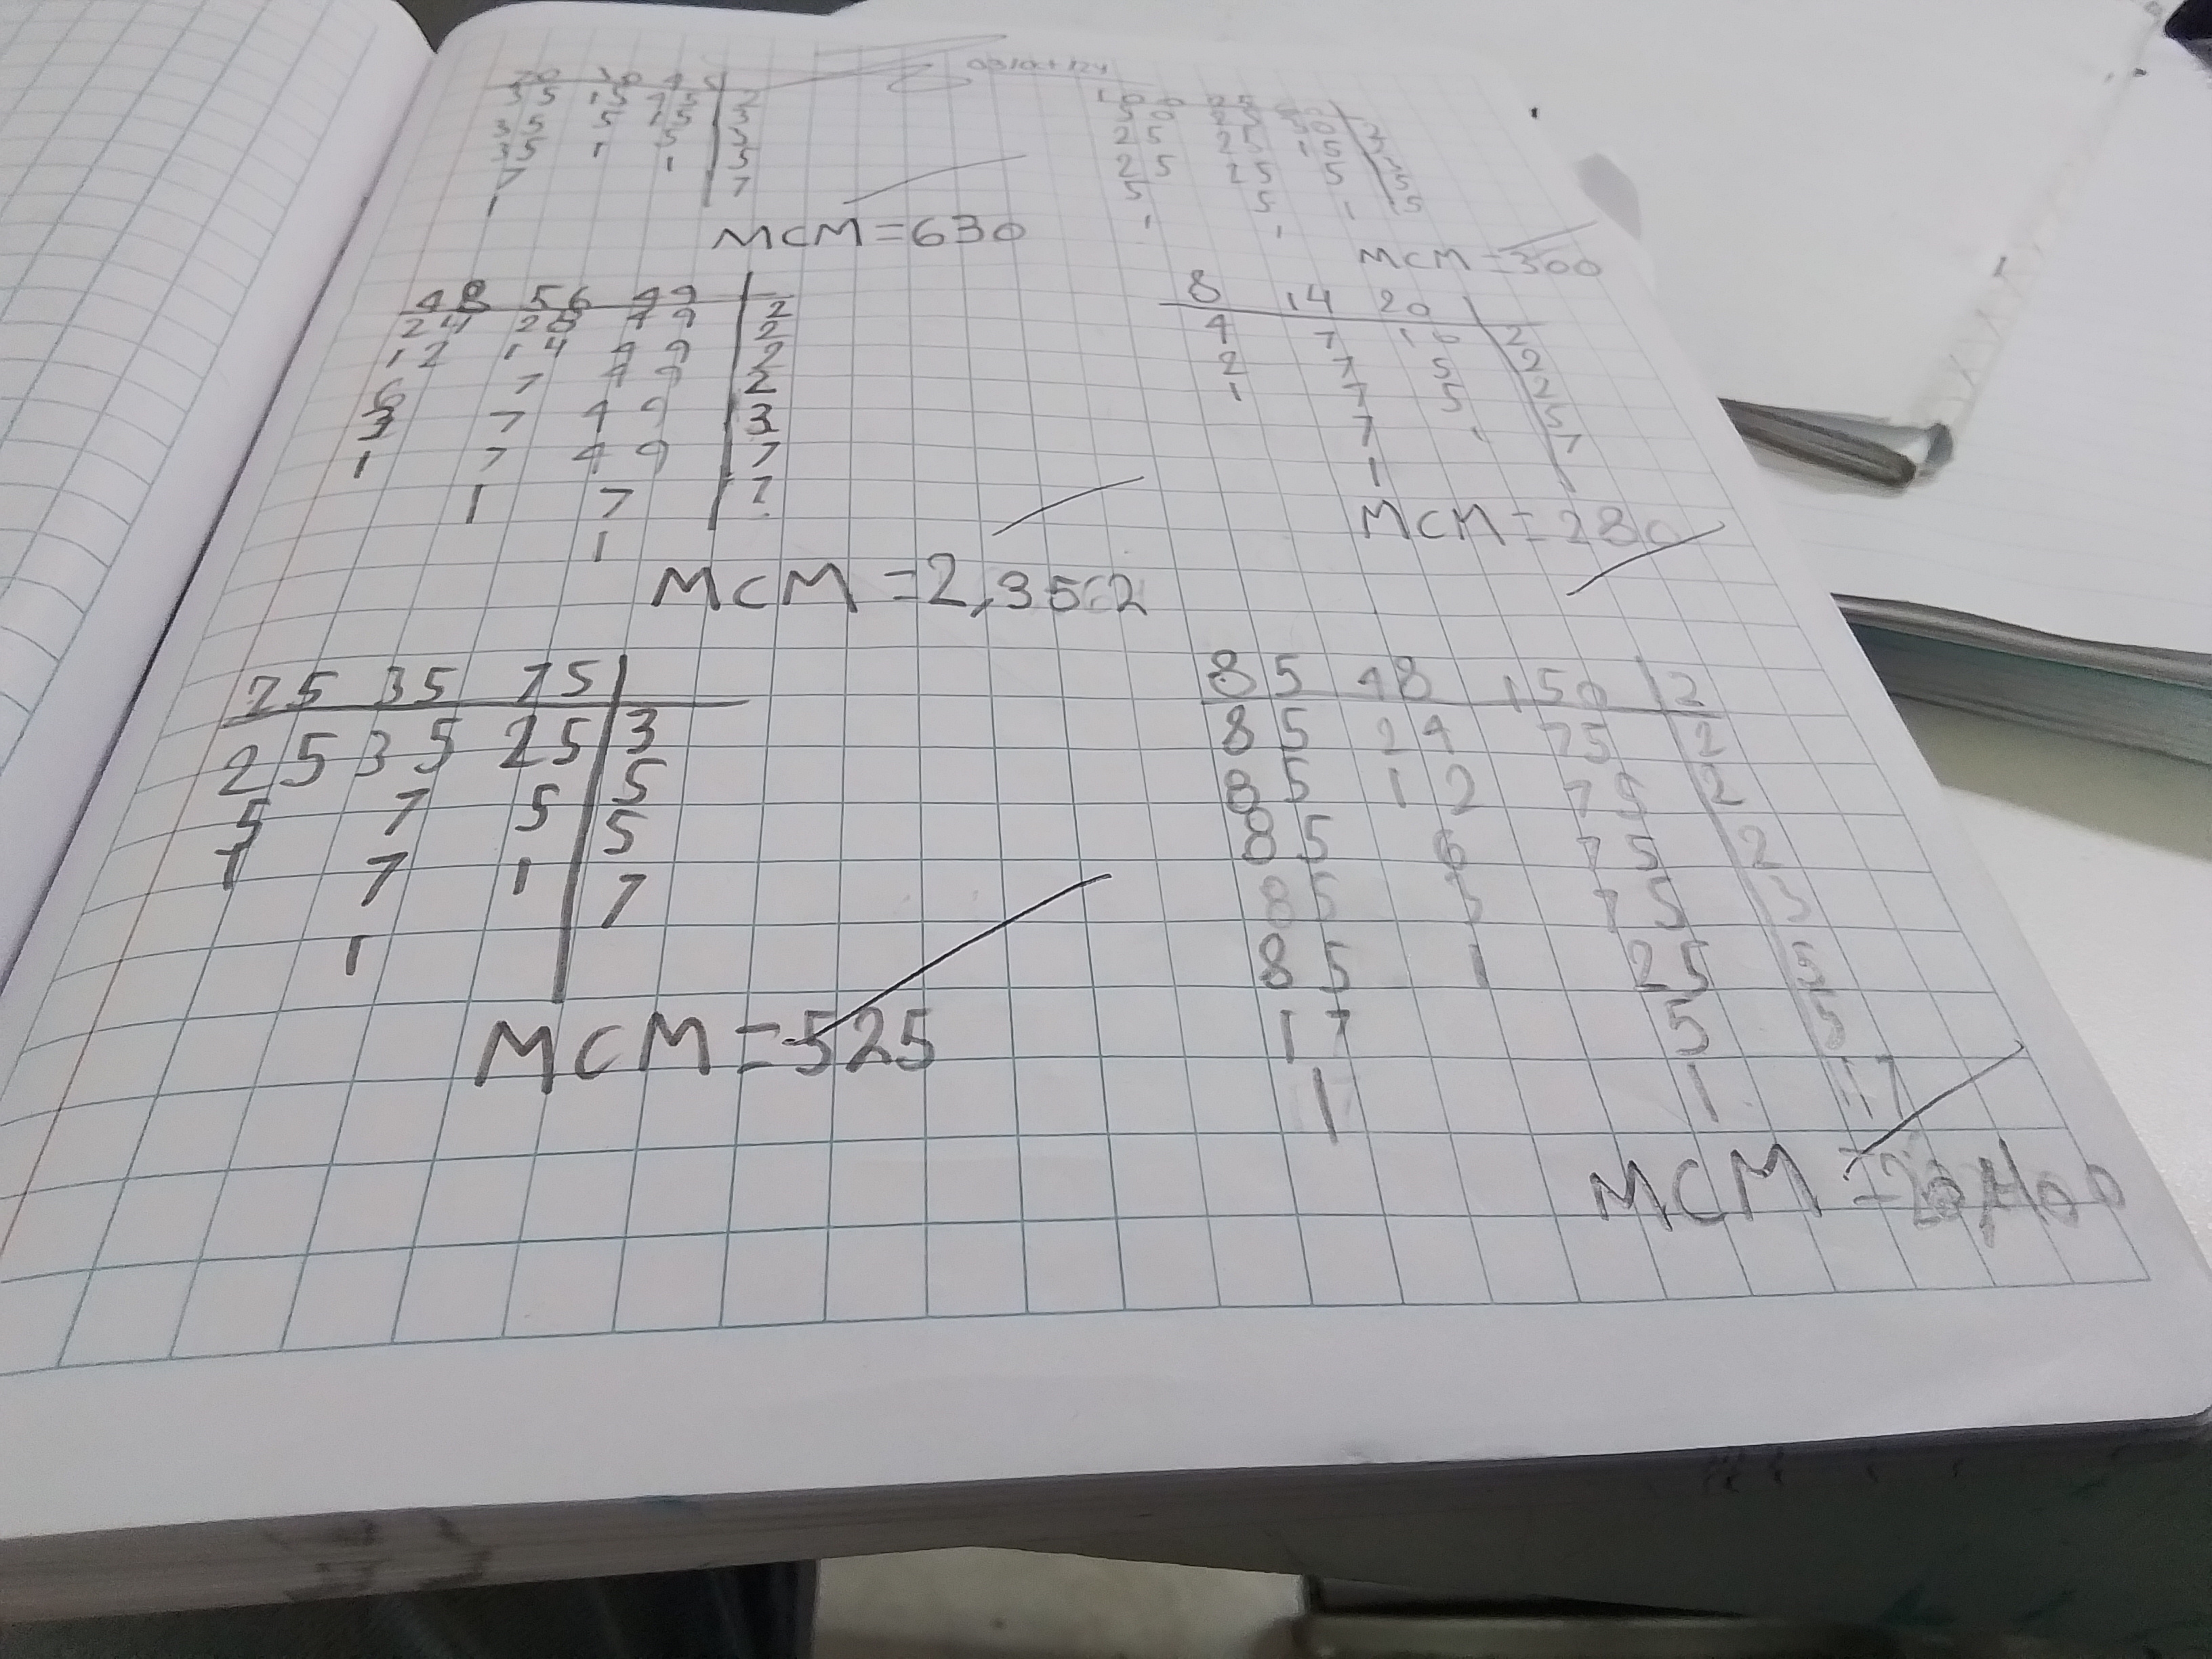 70 30 45
35 15 45 2
35 5 15 3
35 1 5 3
7 1 5
1 7
MCM=630
100 25 60
50 25 30 2
25 25 15 2
25 25 5 3
5 5 1 5
1 1 5
MCM=300
48 56 49
24 28 49 2
12 14 49 2
6 7 49 2
3 7 49 2
1 7 49 3
1 7 7
1 7
MCM=2,352
8 14 20
4 7 10 2
2 7 5 2
1 7 5 2
7 1 5
1 7
MCM=280
25 35 75
25 35 25 3
5 7 5 5
1 7 1 5
1 7
MCM=525
85 48 150 2
85 24 75 2
85 12 75 2
85 6 75 2
85 3 75 3
85 1 25 5
17 5 5
1 1 17
MCM=20,400